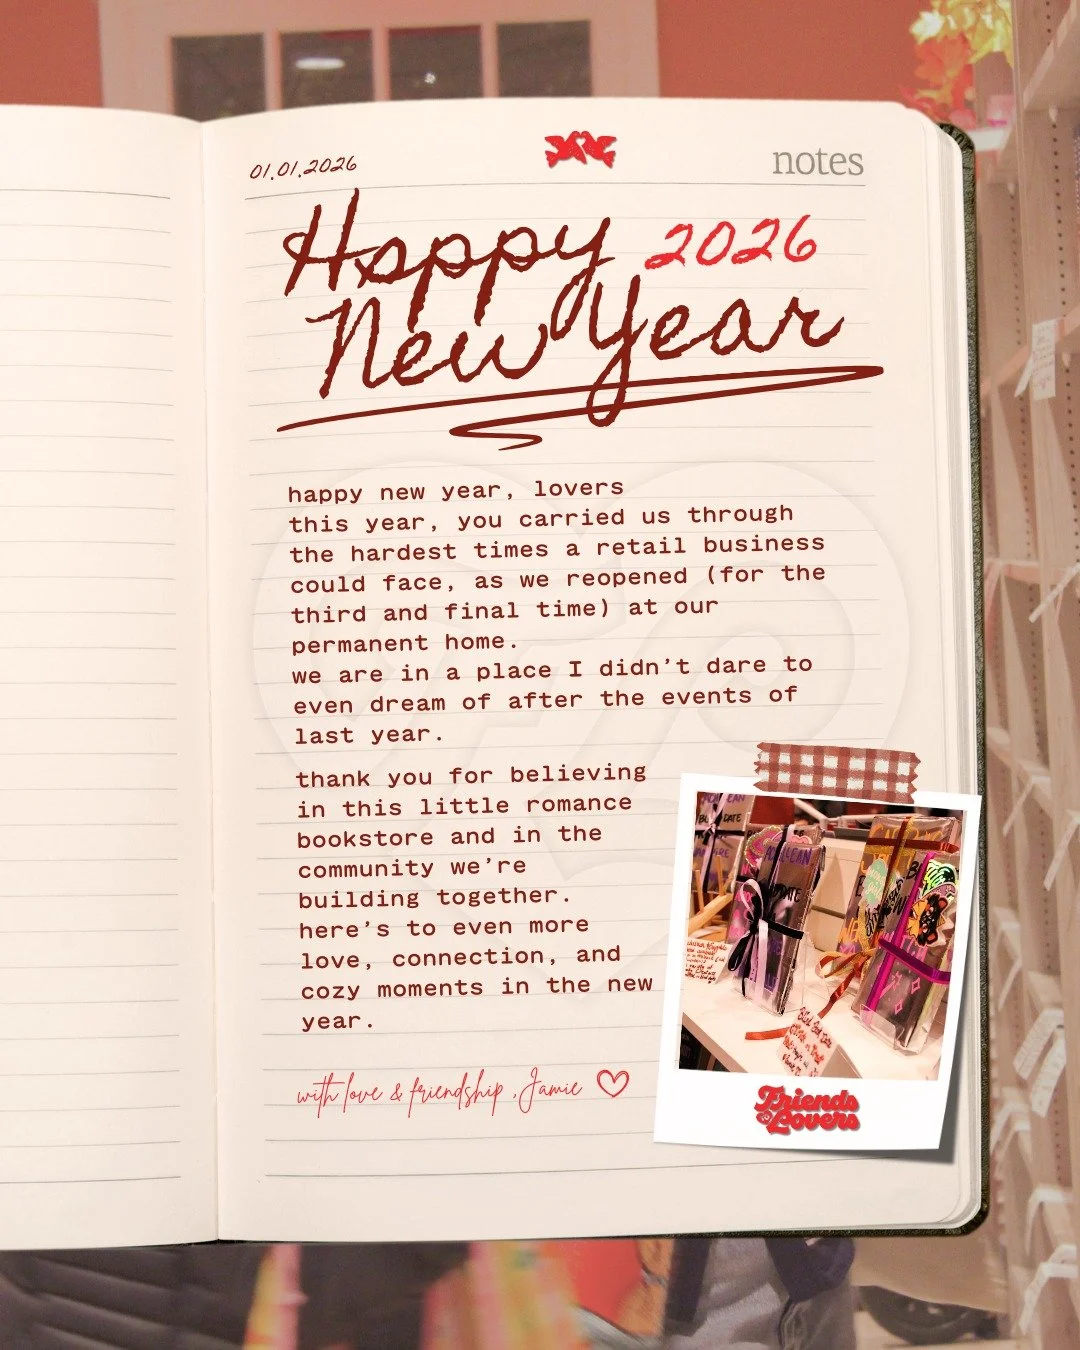 01.01.2026
notes
Happy 2026
New Year
happy new year, lovers
this year, you carried us through
the hardest times a retail business
could face, as we reopened (for the
third and final time) at our
permanent home.
we are in a place I didn't dare to
even dream of after the events of
last year.
thank you for believing
in this little romance
bookstore and in the
community we're
building together.
here's to even more
love, connection, and
cozy moments in the new
year.
with love & friendship, Jamie
Friends
& Lovers